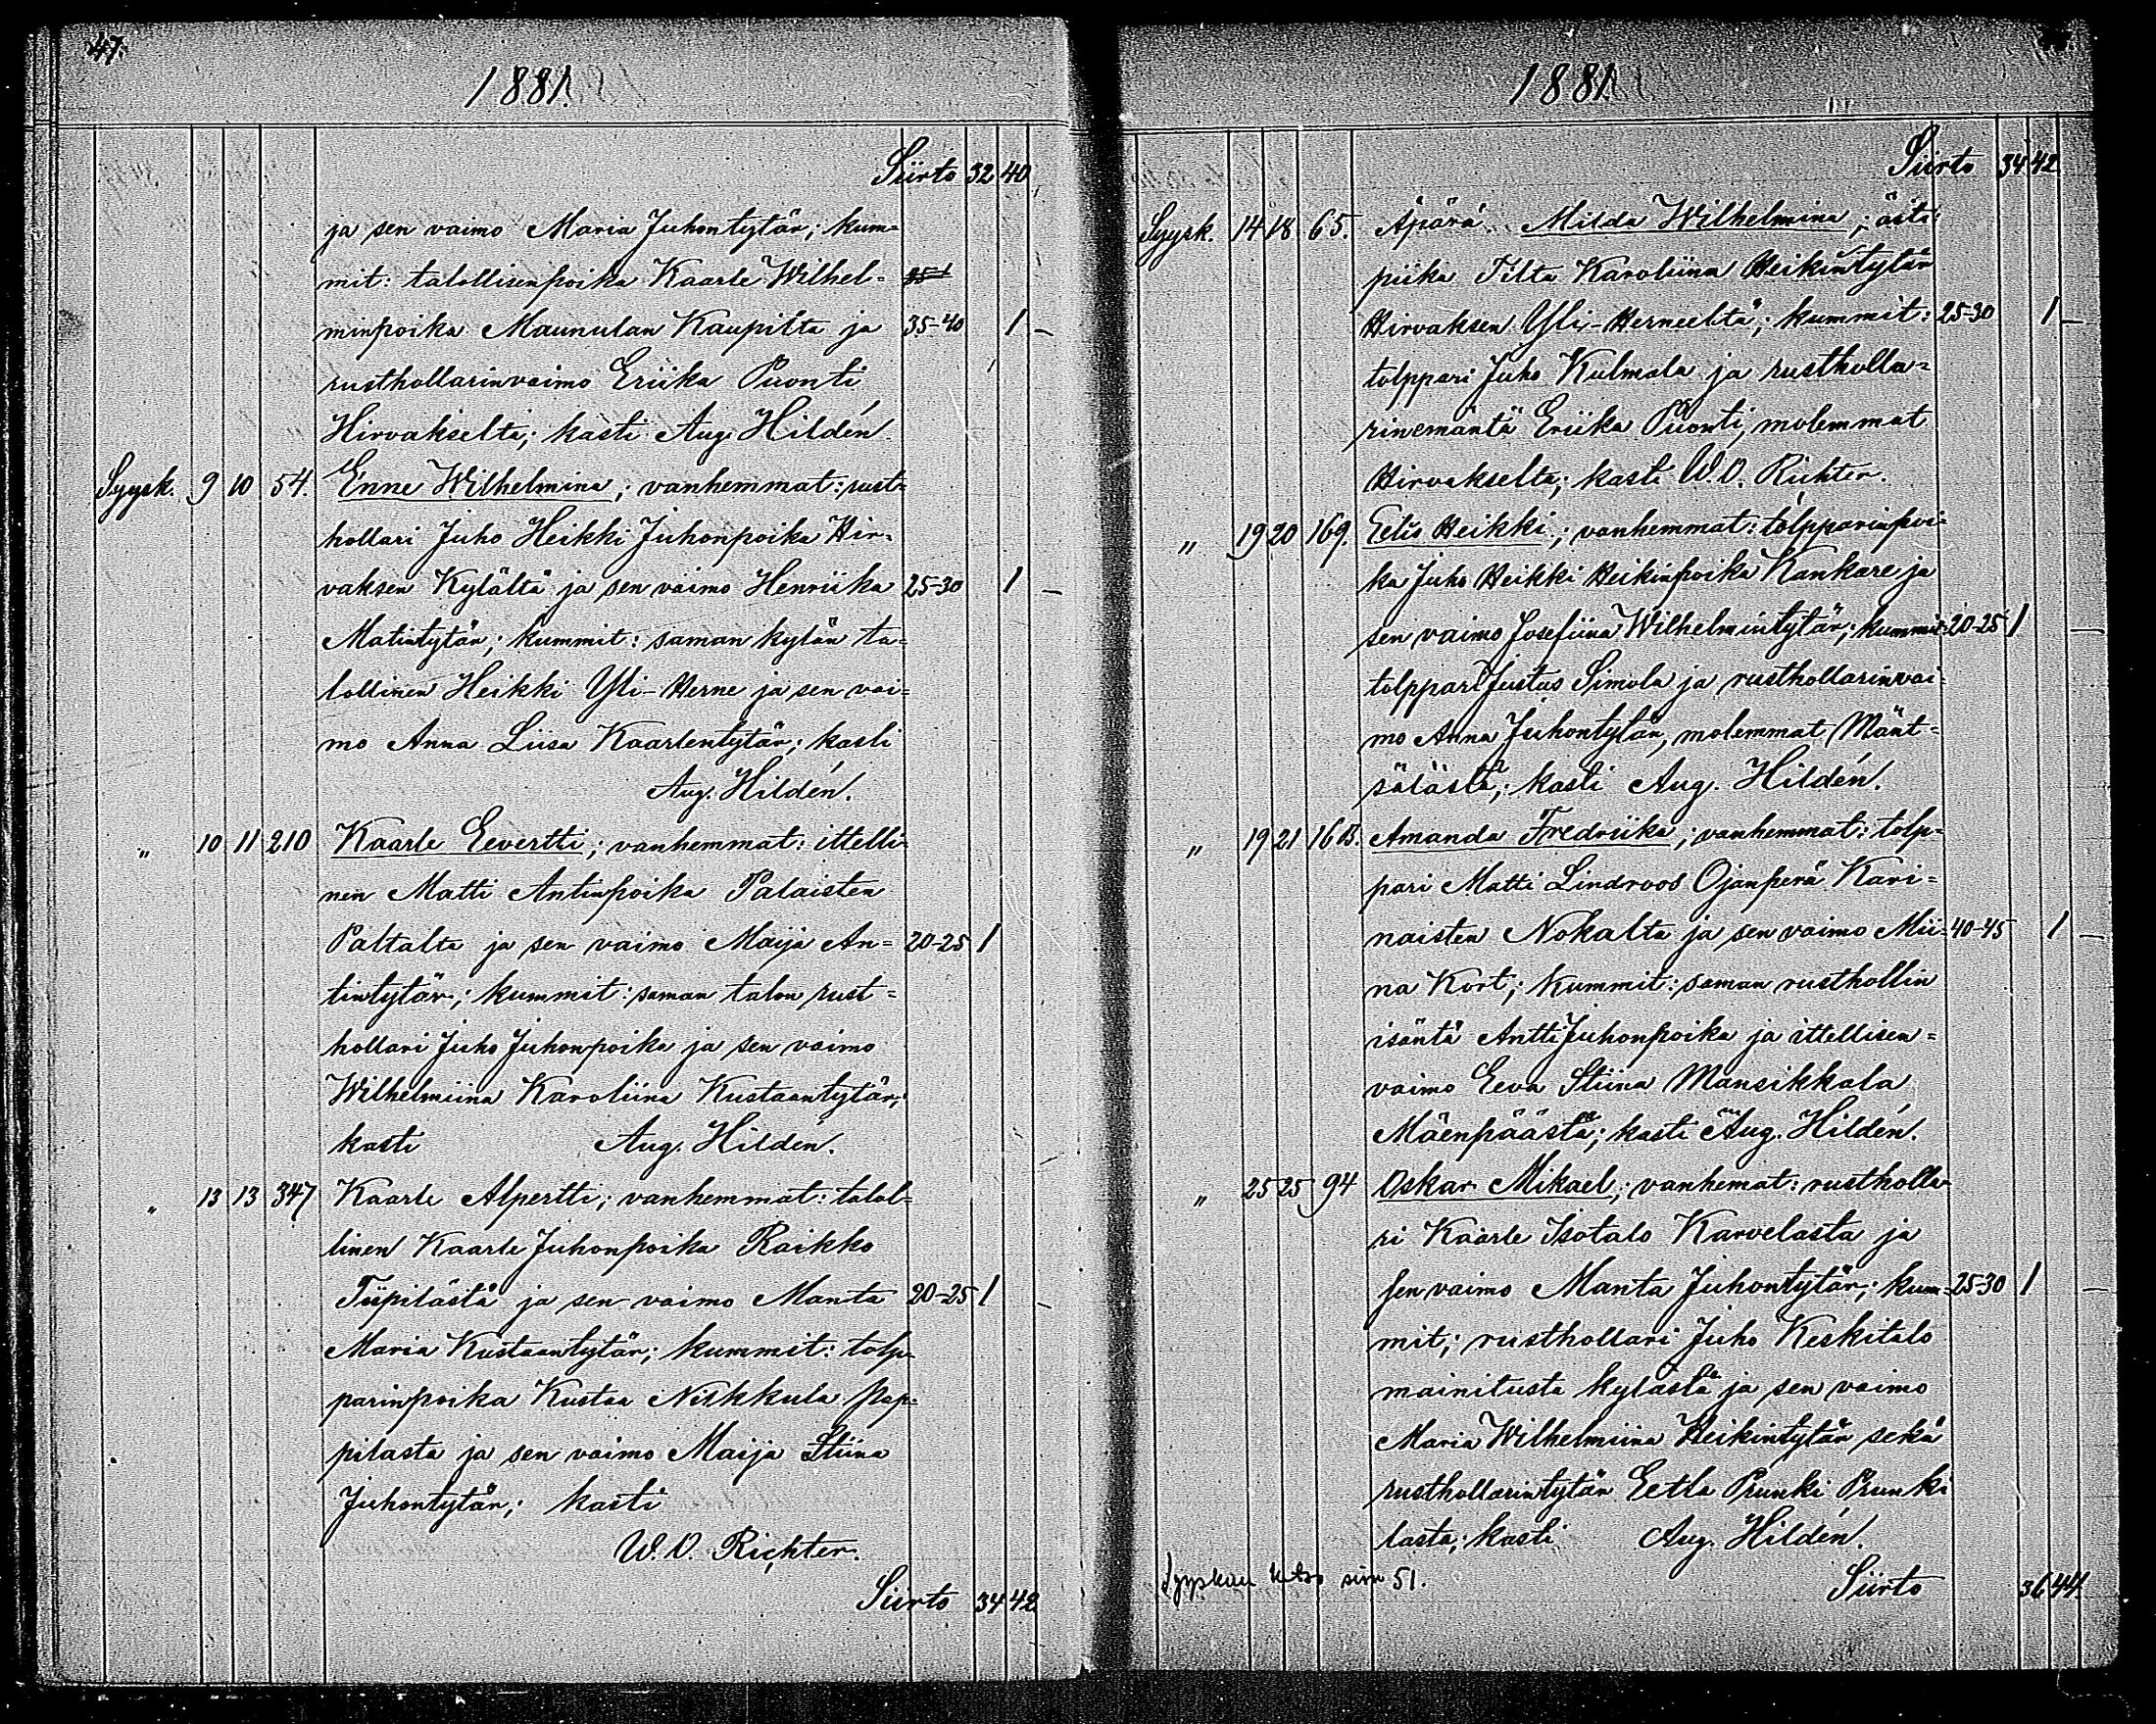 47.
1881.
Siirto 32 40
ja sen vaimo Maria Juhontytär; kum=
mit: talollisenpoika Kaarle Wilhel=
minpoika Maunulan Kaupilta ja 35-40 1 –
rusthollarinvaimo Eriika Puonti
Hirvakselta; kasti Aug. Hildén.
Syysk. 9 10 54. Enne Wilhelmina; vanhemmat: rust=
hollari Juho Heikki Juhonpoika Hir=
vaksen Kylältä ja sen vaimo Henriika 25-30 1 –
Matintytär; kummit: saman kylän ta=
lollinen Heikki Yli-Herne ja sen vai=
mo Anna Liisa Kaarlentytär; kasti
Aug. Hildén.
" 10 11 210 Kaarle Eevertti; vanhemmat: ittelli=
nen Matti Antinpoika Palaisten
Paltalta ja sen vaimo Maija An= 20-25 1
tintytär; kummit: saman talon rust=
hollari Juho Juhonpoika ja sen vaimo
Wilhelmiina Karoliina Kustaantytär;
kasti Aug. Hildén.
" 13 13 347 Kaarle Alpertti; vanhemmat: talol=
linen Kaarle Juhonpoika Raikko
Tiipilästä ja sen vaimo Manta 20-25 1 –
Maria Kustaantytär; kummit: tolp=
parinpoika Kustaa Niskkula Pap=
pilasta ja sen vaimo Maija Stiina
Juhontytär; kasti
W. O. Richter.
Siirto 34 42
1881.
Siirto 34 42
Syysk. 14 18 65. Äpärä Milda Wilhelmina; äiti:
piika Tilta Karoliina Heikintytär
Hirvaksen Yli-Herneeltä; kummit: 25-30 1 –
tolppari Juho Kulmala ja rustholla=
rinemäntä Eriika Puonti, molemmat
Hirvakselta; kasti W. O. Richter.
" 19 20 169. Eelis Heikki; vanhemmat: tolpparinpoi=
ka Juho Heikki Heikinpoika Kankare ja
sen vaimo Josefiina Wilhelmintytär; kummit: 20-25 1 –
tolppari Justus Simola ja rusthollarinvai=
mo Anna Juhontytär, molemmat Mänt=
sälästä; kasti Aug. Hildén.
" 19 21 16 B. Amanda Fredriika; vanhemmat: tolp=
pari Matti Lindroos Ojanperä Kari=
naisten Nokalta ja sen vaimo Mii= 40-45 1 –
na Kort; kummit: saman rusthollin
isäntä Antti Juhonpoika ja ittellisen=
vaimo Eeva Stiina Mansikkala
Mäenpäästä; kasti Aug. Hildén.
" 25 25 94 Oskar Mikael; vanhemat: rustholla=
ri Kaarle Isotalo Karvelasta ja
sen vaimo Manta Juhontytär; kum= 25-30 1 –
mit; rusthollari Juho Keskitalo
mainitusta kylästä ja sen vaimo
Maria Wilhelmiina Heikintytär sekä
rusthollarintytär Eetla Prunki Prunki
lasta; kasti Aug. Hildén.
Syyskuu katso sivu 51.
Siirto 36 44.